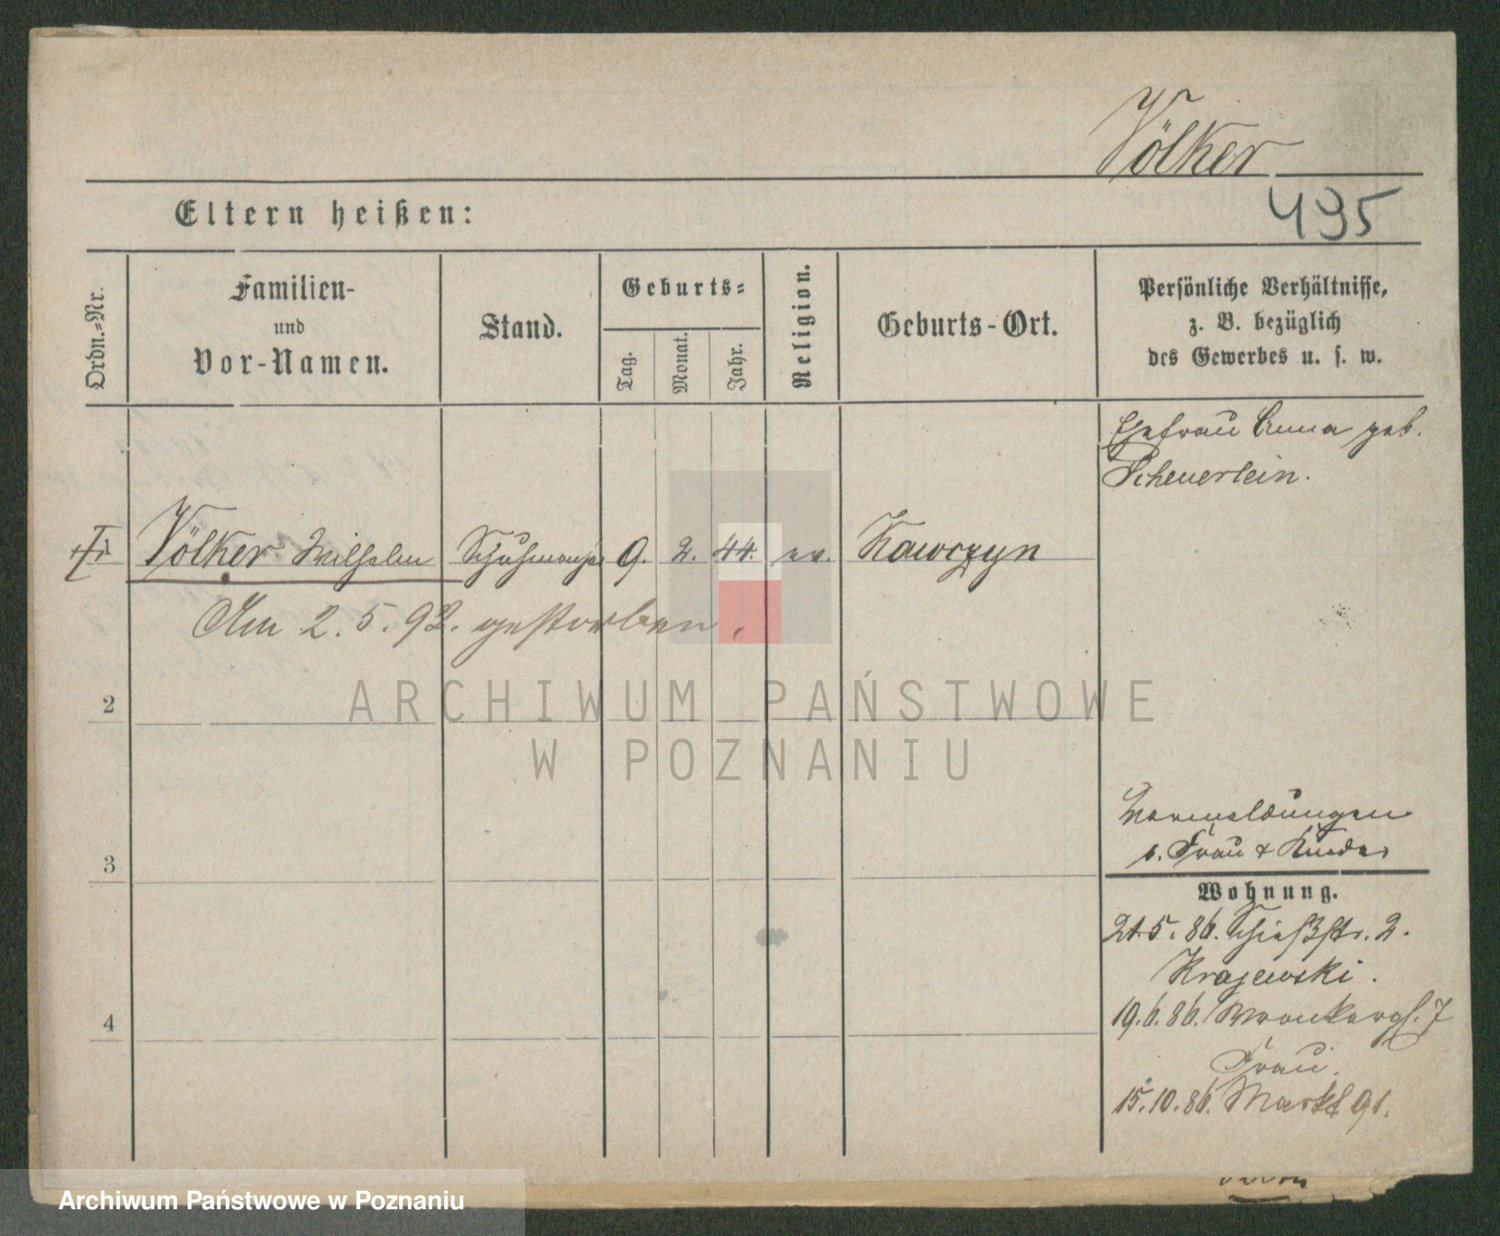 Völker
495
Eltern heißen:
Ordn.-Nr.
Familien-
und
Vor-Namen.
Stand.
Geburts-
Tag.
Monat.
Jahr.
Religion.
Geburts-Ort.
Persönliche Verhältnisse,
z. B. bezüglich
des Gewerbes u. s. w.
Ehefrau Anna geb.
Scheuerlein.
Völker Wilhelm 9. 2. 44. ev. Kawczyn
Am 2. 5. 92. gestorben.
2
3
4
ARCHIWUM PAŃSTWOWE
W POZNANIU
Frau & Kinder
Wohnung.
21.5.86. Schießstr. 2.
Krajewski.
19.6.86. Wronkergs. 7
Frau.
15.10.86. Markt 91.
Archiwum Państwowe w Poznaniu